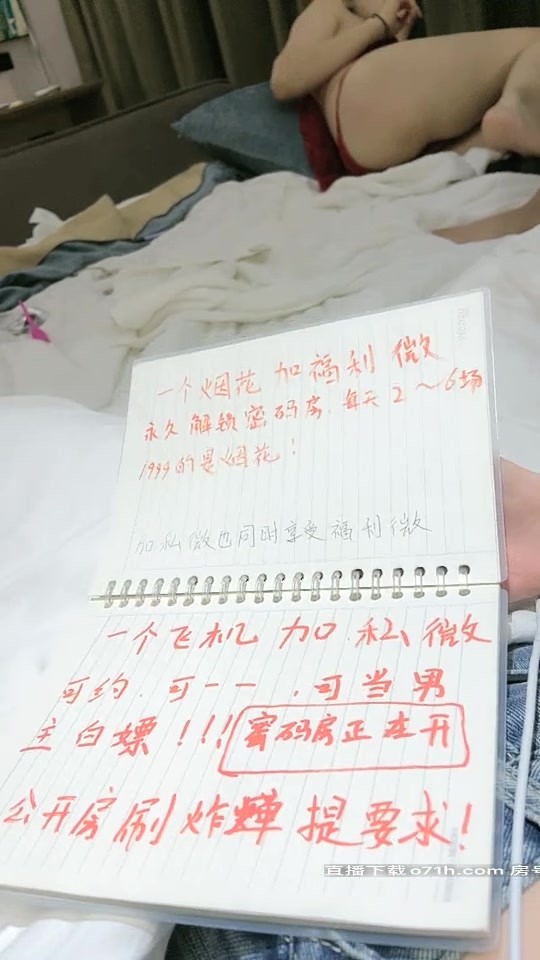 一个烟花 加福利 微
永久 解锁 密码房.每天 2～6场
1999的是烟花！
加私微也同时享受 福利微
一个飞机 加 私微
可约.可一一.可当男
主白嫖！!! 密码房正在开
公开房刷炸弹提要求！
直播下载 o71h.com 房号